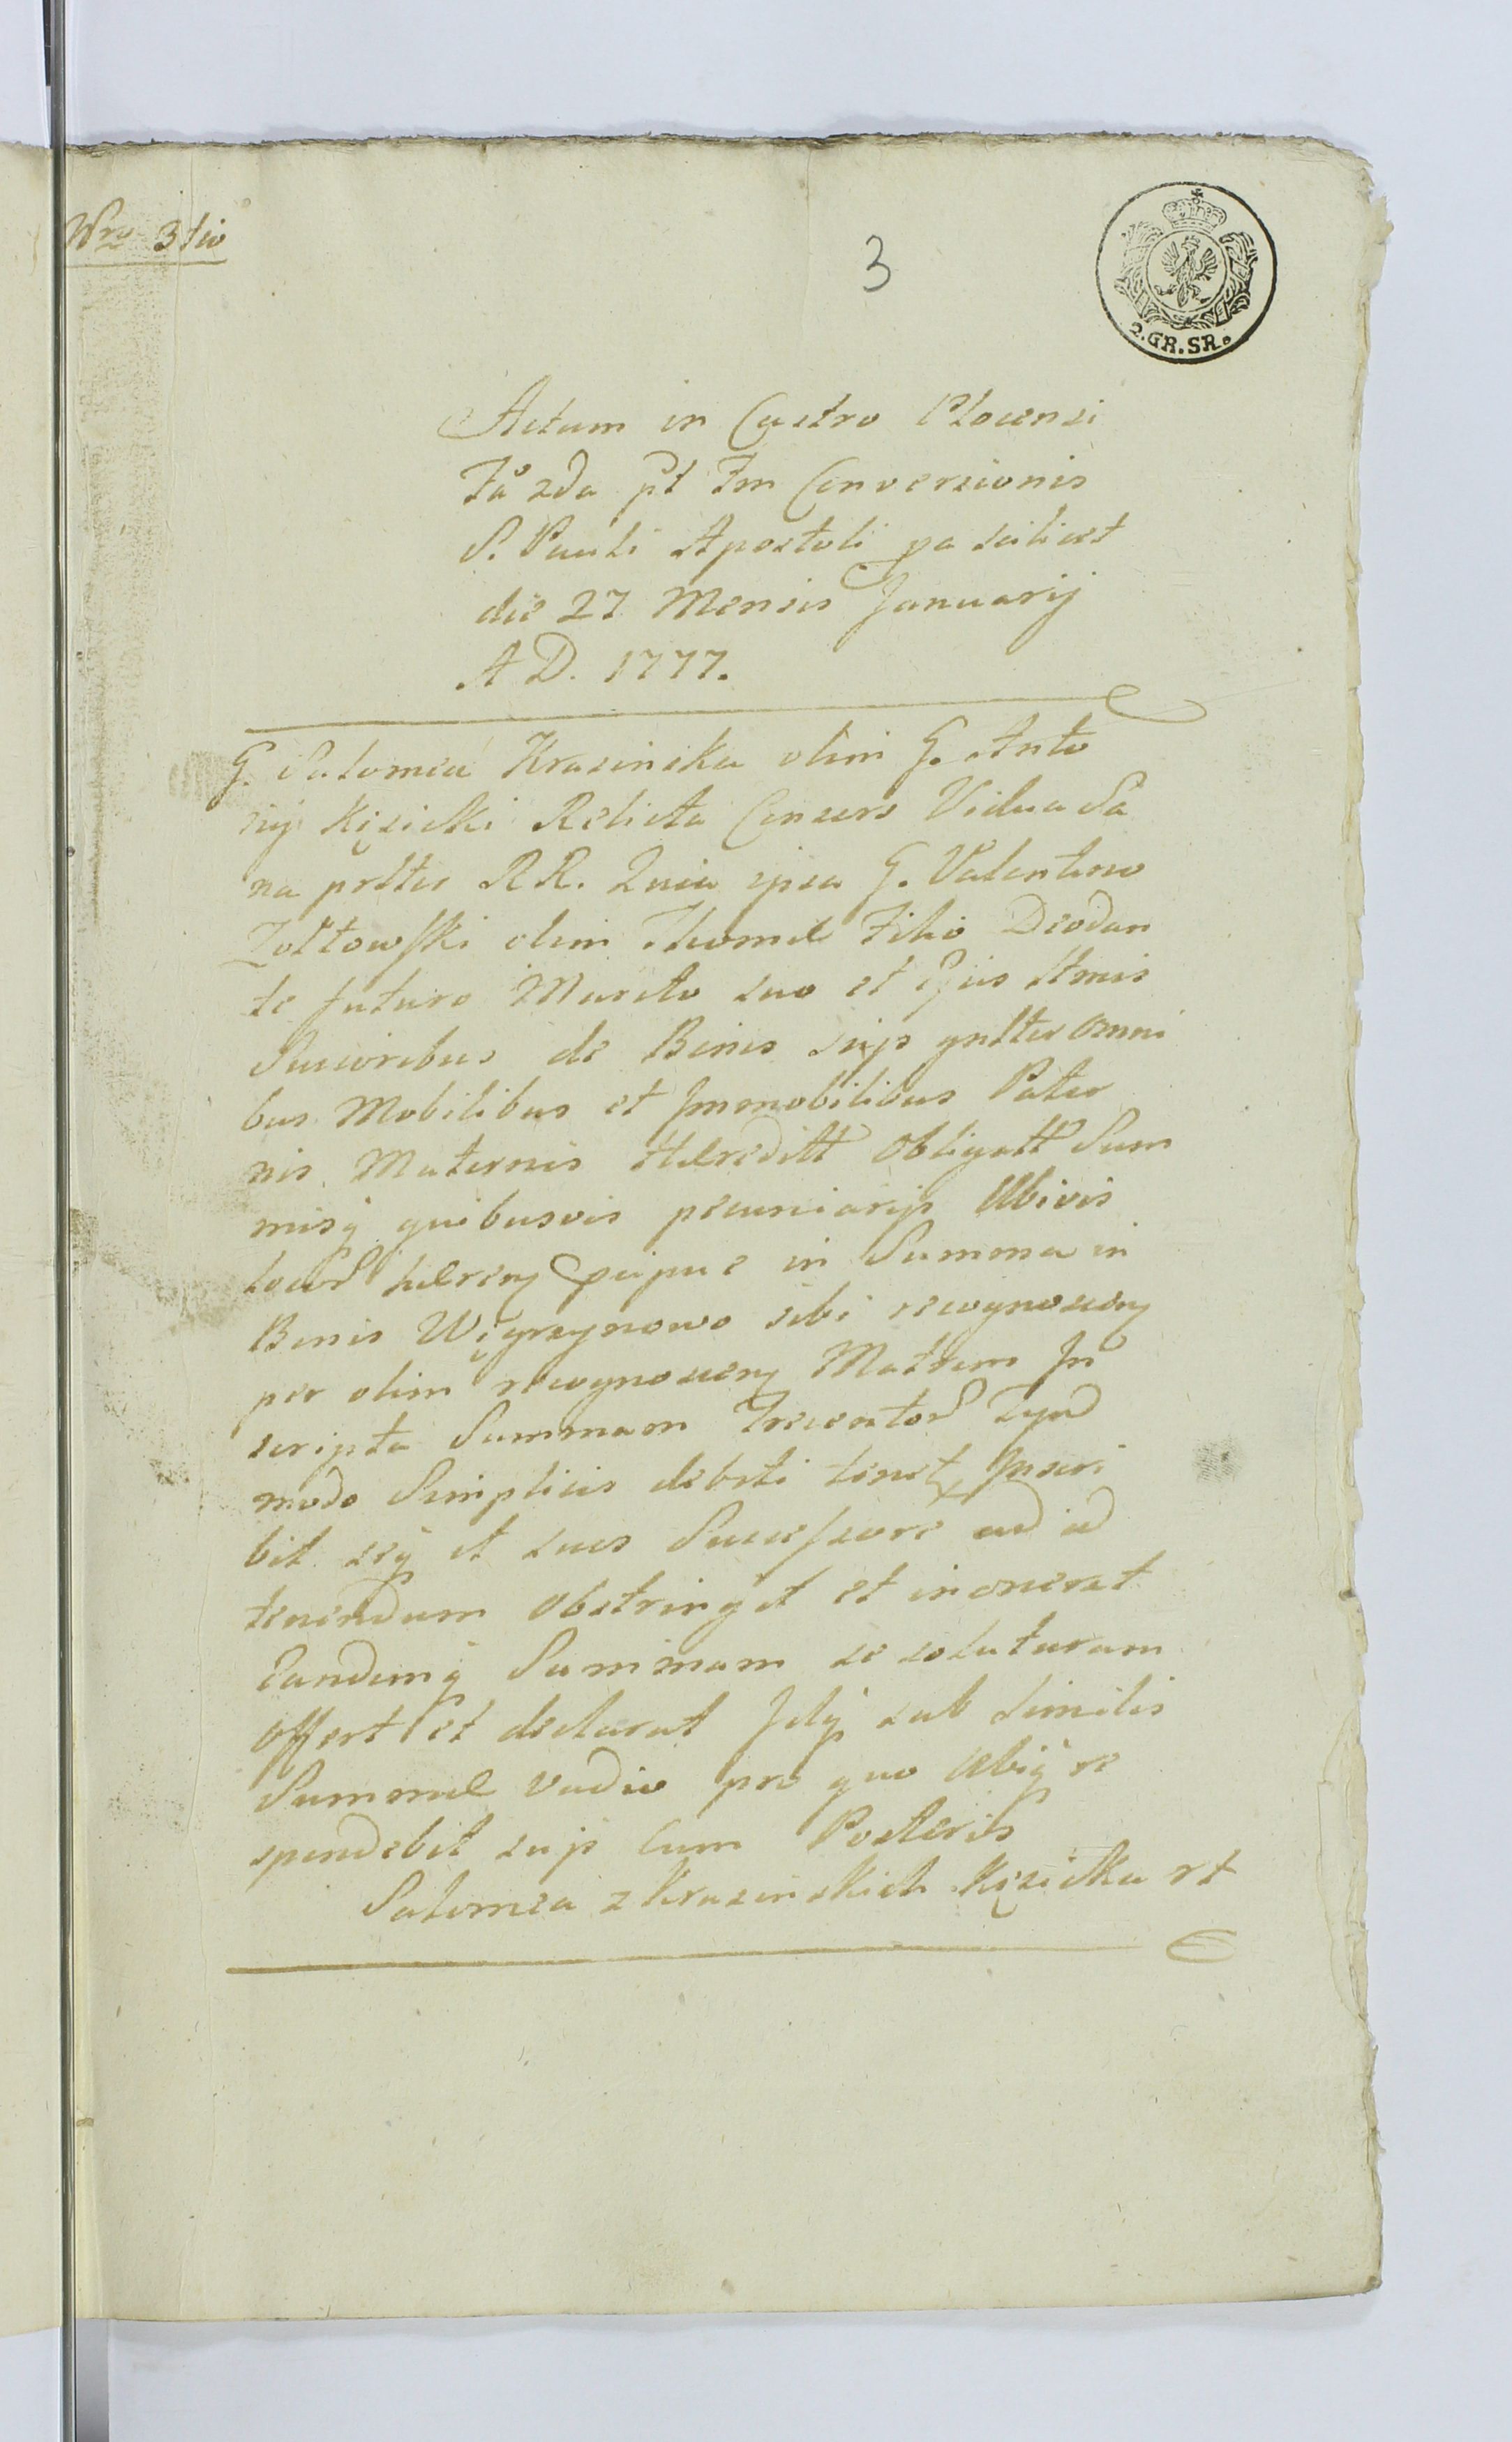 Nro 3tio
3
2.GR.SR.
Actum in Castro Plocensi
Fa 2da pt Fm Conversionis
S. Pauli Apostoli qa scilicet
die 27 Mensis Januarij
A D. 1777.
G. Salomea Krasinska olim G. Anto
nij Kęsicki Relicta Consors Vidua Sa
na prltis RR. Quia ipsa G. Valentino
Zołtowski olim Thomæ Filio Deodan
te futuro Marito suo et Ejus ltmis
Suc̄oribus de Bonis suis gnlter omni
bus Mobilibus et Immobilibus Pater
nis Maternis Hæreditt Obligatt Sum
misq quibusvis pecuniarijs Ubivis
hæren pcipue in Summa in
Bonis Węgrzynowo sibi recognoscen
per olim recognoscen Matrem In
scripta Summam Trecentor
modo Simplicis debiti tenet Inscri
bit seq et suos Successore ad id
tenendum obstringit et inonerat
Eandemq Summam se soluturam
offert et declarat Idq sub similis
Summæ vadio pro quo Ubiq re
spondebit suis cum Posteris
Salomea z Krasinskich Kęsicka